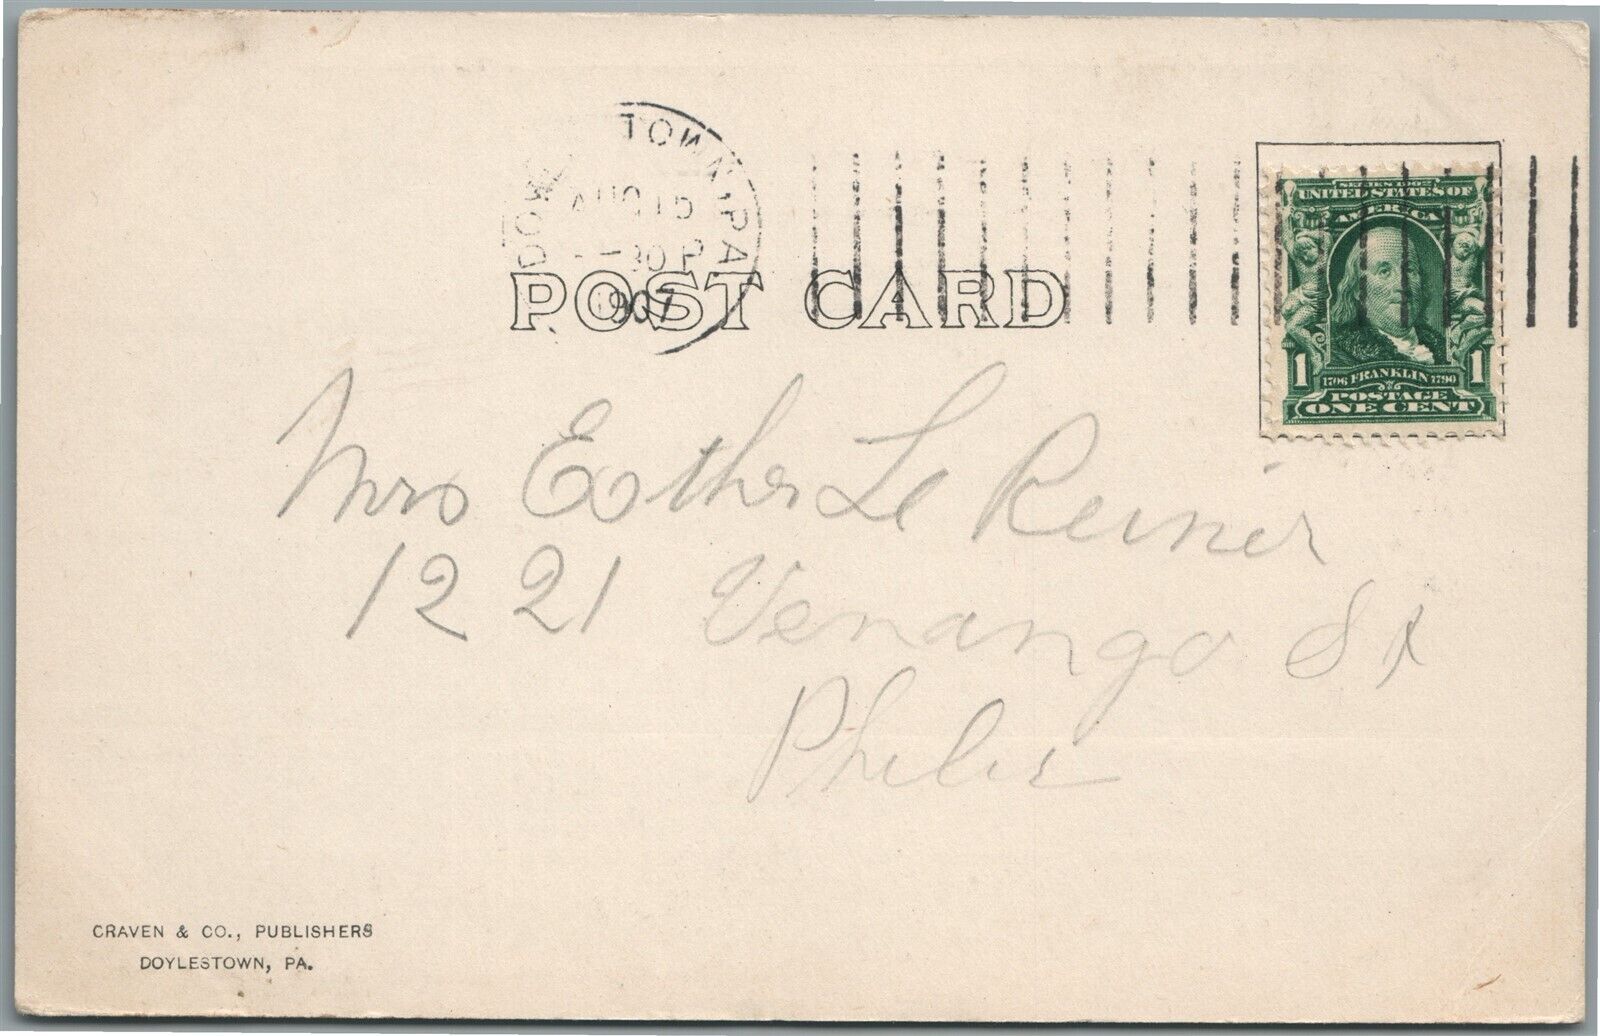 TOWN, PA
1907
POST CARD
SERIES 1902
UNITED STATES OF
AMERICA
1 1
1706 FRANKLIN 1790
POSTAGE
ONE CENT
Mrs Esther Le Reiner
1221 Venango St
Phila
CRAVEN & CO., PUBLISHERS
DOYLESTOWN, PA.